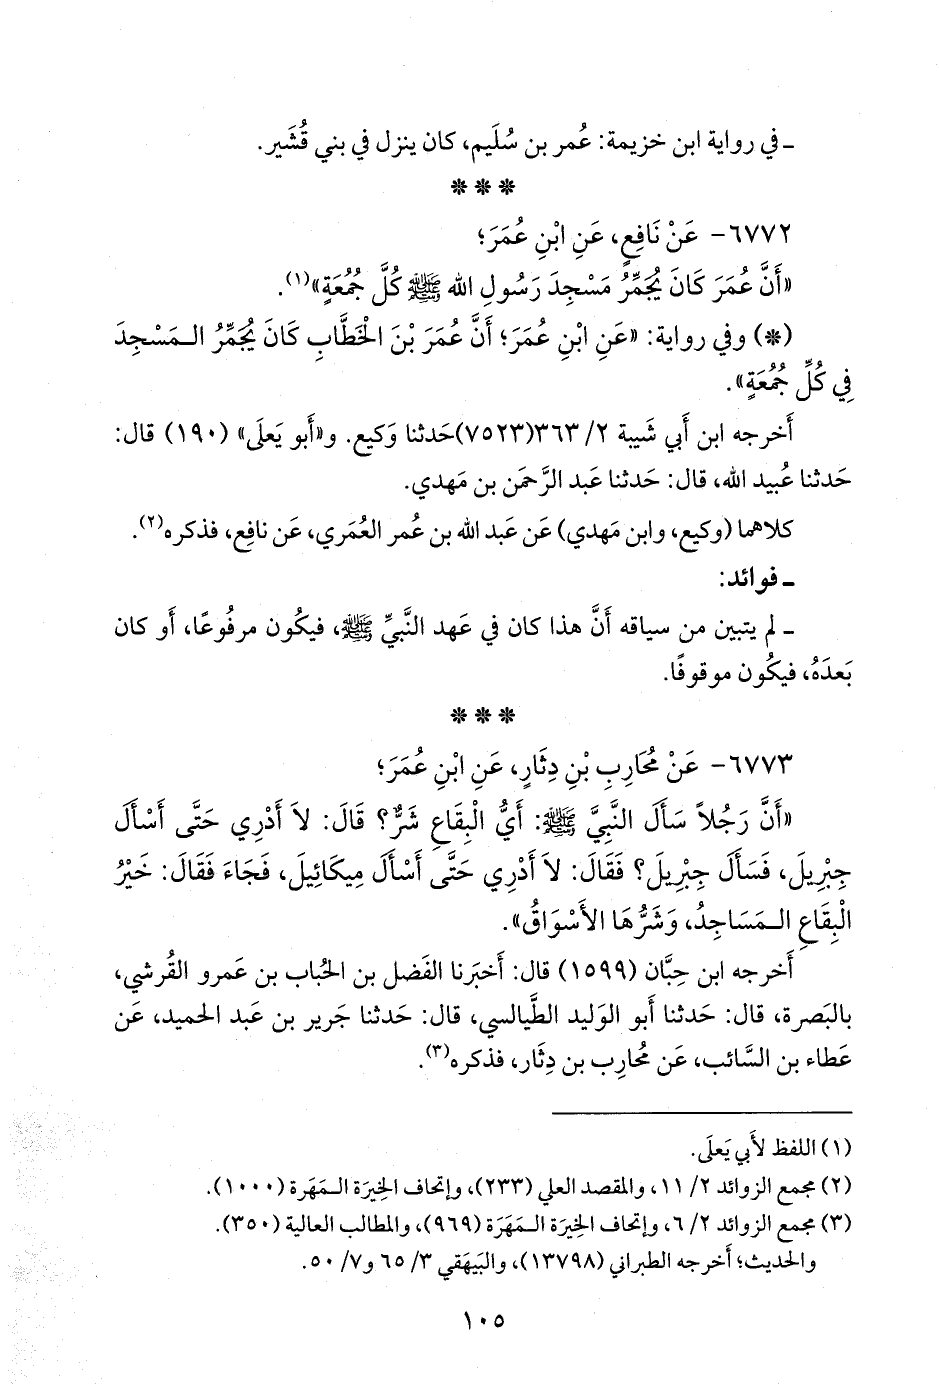 ـ في رواية ابن خزيمة: عُمر بن سُلَيم، كان ينزل في بني قُشَير.
* * *
٦٧٧٢- عَنْ نَافِعٍ، عَنِ ابْنِ عُمَرَ؛
«أَنَّ عُمَرَ كَانَ يُجَمِّرُ مَسْجِدَ رَسُولِ الله ﷺ كُلَّ جُمُعَةٍ»(١).
(*) وفي رواية: «عَنِ ابْنِ عُمَرَ؛ أَنَّ عُمَرَ بْنَ الخَطَّابِ كَانَ يُجَمِّرُ الـمَسْجِدَ
فِي كُلِّ جُمُعَةٍ».
أَخرجه ابن أَبي شَيبة ٢/ ٣٦٣(٧٥٢٣)حَدثنا وَكيع. و«أَبو يَعلَى» (١٩٠) قال:
حَدثنا عُبيد الله، قال: حَدثنا عَبد الرَّحمَن بن مَهدي.
كلاهما (وكيع، وابن مَهدي) عَن عَبد الله بن عُمر العُمَري، عَن نافِع، فذكره(٢).
ـ فوائد:
ـ لم يتبين من سياقه أَنَّ هذا كان في عَهد النَّبيِّ ﷺ، فيكُون مرفُوعًا، أَو كان
بَعدَهُ، فيكُون موقوفًا.
* * *
٦٧٧٣- عَنْ مُحَارِبِ بْنِ دِثَارٍ، عَنِ ابْنِ عُمَرَ؛
«أَنَّ رَجُلاً سَأَلَ النَّبِيَّ ﷺ: أَيُّ الْبِقَاعِ شَرٌّ؟ قَالَ: لاَ أَدْرِي حَتَّى أَسْأَلَ
جِبْرِيلَ، فَسَأَلَ جِبْرِيلَ؟ فَقَالَ: لاَ أَدْرِي حَتَّى أَسْأَلَ مِيكَائِيلَ، فَجَاءَ فَقَالَ: خَيْرُ
الْبِقَاعِ الـمَسَاجِدُ، وَشَرُّهَا الأَسْوَاقُ».
أَخرجه ابن حِبَّان (١٥٩٩) قال: أَخبَرنا الفَضل بن الحُباب بن عَمرو القُرشي،
بالبَصرة، قال: حَدثنا أَبو الوَليد الطَّيالسي، قال: حَدثنا جَرير بن عَبد الحميد، عَن
عَطاء بن السَّائب، عَن مُحارِب بن دِثَار، فذكره(٣).
(١) اللفظ لأَبي يَعلَى.
(٢) مجمع الزوائد ٢/ ١١، والمقصد العلي (٢٣٣)، وإتحاف الخِيرَة الـمَهَرة (١٠٠٠).
(٣) مجمع الزوائد ٢/ ٦، وإتحاف الخِيرَة الـمَهَرَة (٩٦٩)، والمطالب العالية (٣٥٠).
والحديث؛ أخرجه الطبراني (١٣٧٩٨)، والبَيهَقي ٣/ ٦٥ و٧/ ٥٠.
١٠٥